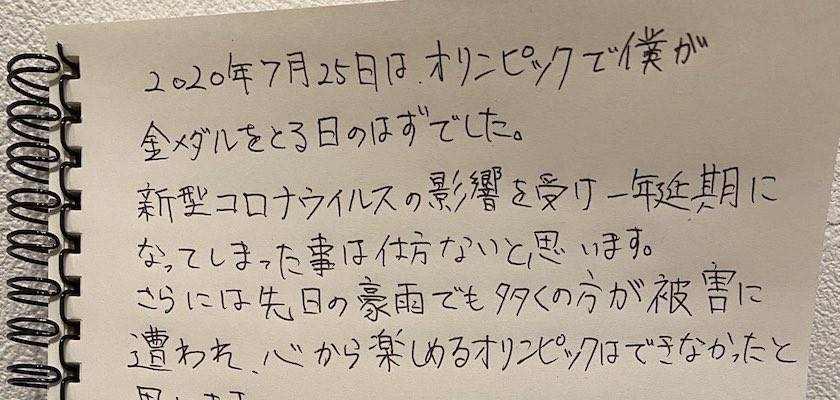 2020年7月25日は、オリンピックで僕が
金メダルをとる日のはずでした。
新型コロナウイルスの影響を受け一年延期に
なってしまった事は仕方ないと思います。
さらには先日の豪雨でも多くの方が被害に
遭われ、心から楽しめるオリンピックはできなかったと
思います